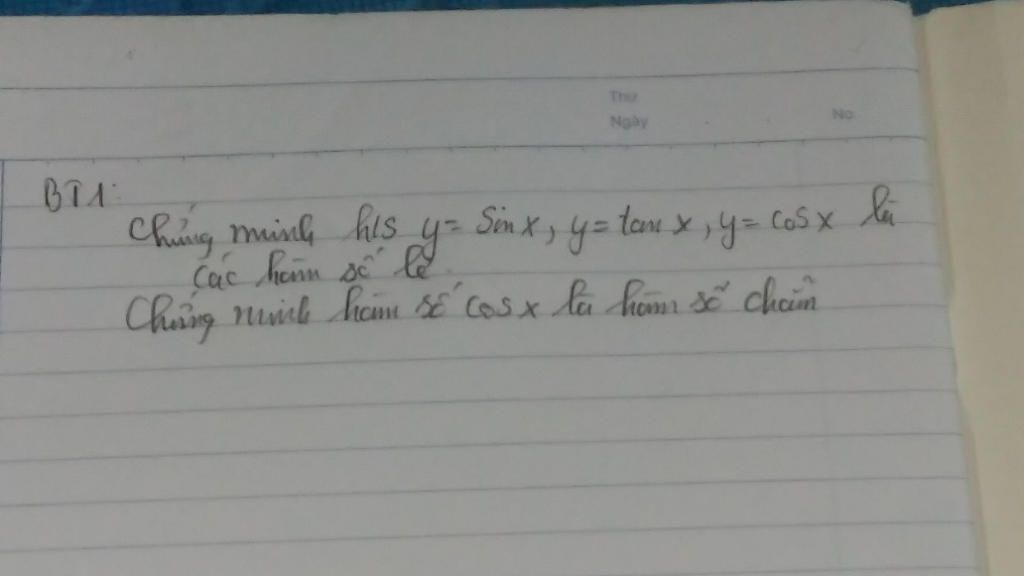 Thứ
Ngày
No.
BT1:
Chứng minh h/s y = sin x, y = tan x, y = cos x là
các hàm số lẻ.
Chứng minh hàm số cos x là hàm số chẵn